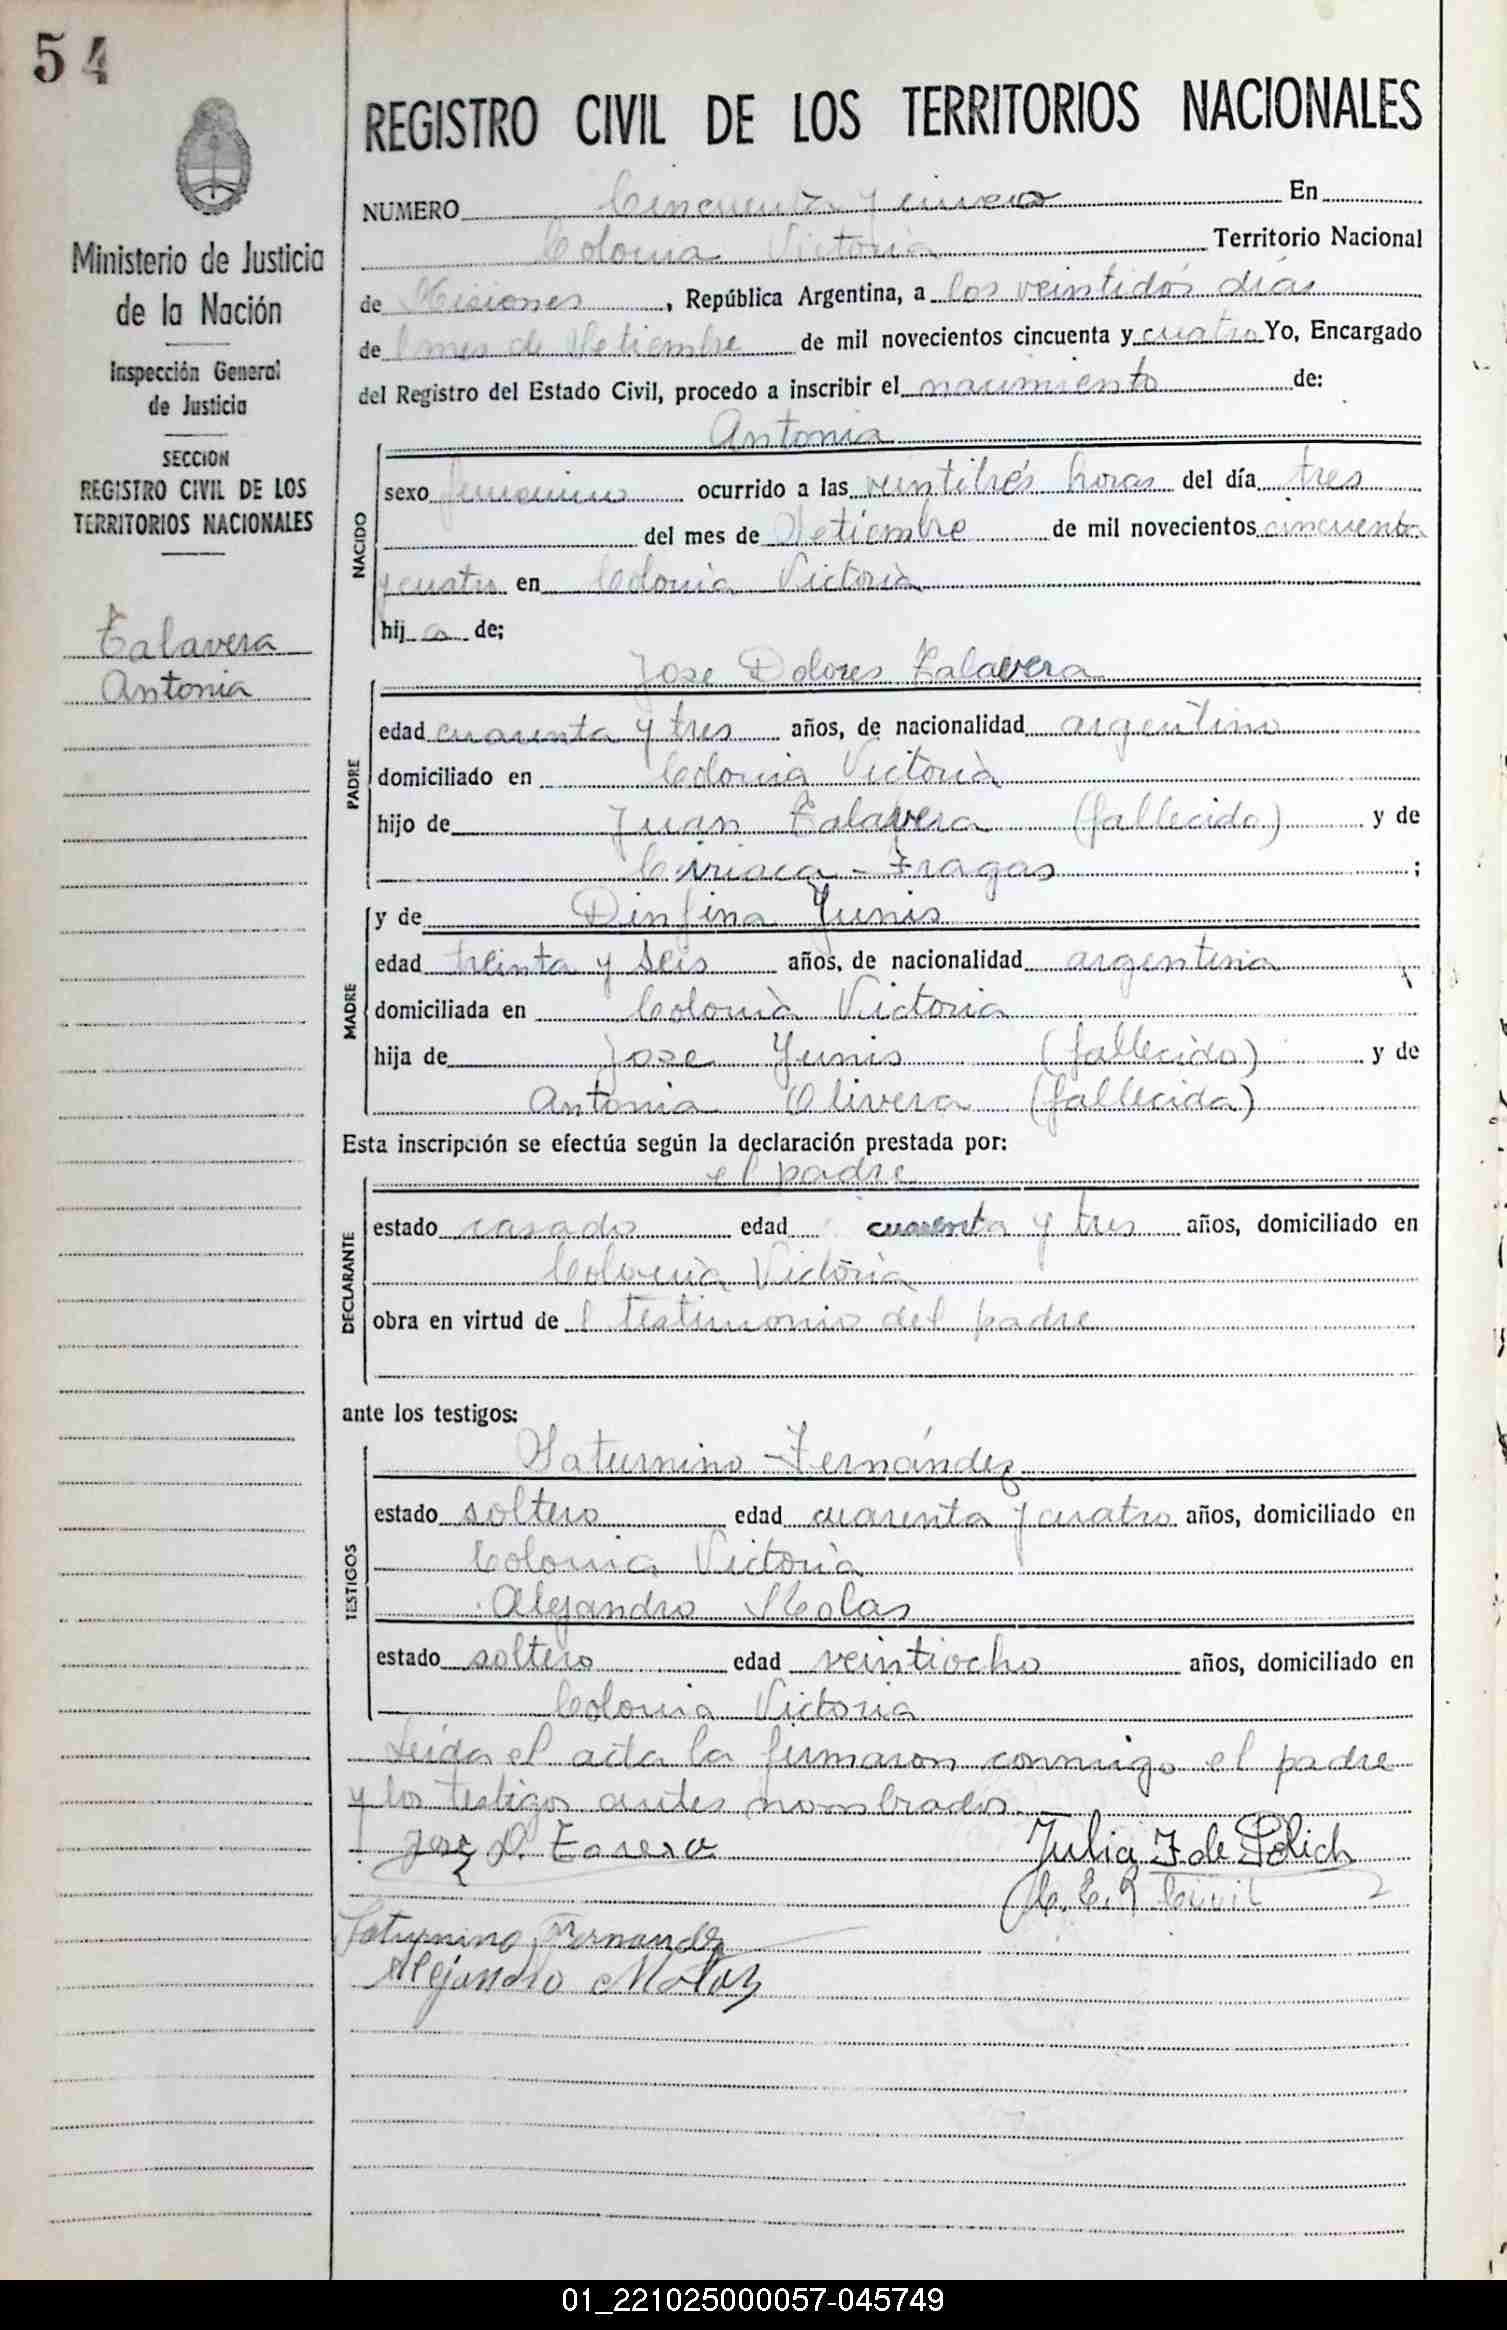 54
Ministerio de Justicia
de la Nación
Inspección General
de Justicia
SECCION
REGISTRO CIVIL DE LOS
TERRITORIOS NACIONALES
Talavera
Antonia
REGISTRO CIVIL DE LOS TERRITORIOS NACIONALES
NUMERO Cincuenta y cinco En
Colonia Victoria Territorio Nacional
de Misiones, República Argentina, a los veintidós días
del mes de Setiembre de mil novecientos cincuenta y cuatro Yo, Encargado
del Registro del Estado Civil, procedo a inscribir el nacimiento de:
Antonia
NACIDO
sexo femenino ocurrido a las veintitrés horas del día tres
del mes de Setiembre de mil novecientos cincuenta
y cuatro en Colonia Victoria
hija de;
Jose Dolores Talavera
PADRE
edad cuarenta y tres años, de nacionalidad argentino
domiciliado en Colonia Victoria
hijo de Juan Talavera (fallecido) y de
Ciriaca - Fragas ;
MADRE
y de Dinfina Yunis
edad treinta y seis años, de nacionalidad argentina
domiciliada en Colonia Victoria
hija de Jose Yunis (fallecido) y de
Antonia Olivera (fallecida)
Esta inscripción se efectúa según la declaración prestada por:
el padre
DECLARANTE
estado casado edad cuarenta y tres años, domiciliado en
Colonia Victoria
obra en virtud del testimonio del padre
ante los testigos:
Saturnino Fernández
TESTIGOS
estado soltero edad cuarenta y cuatro años, domiciliado en
Colonia Victoria
Alejandro Molas
estado soltero edad veintiocho años, domiciliado en
Colonia Victoria
Leída el acta la firmaron conmigo el padre
y los testigos antes nombrados.
Jose D. Julia F de Polich
E. R. Civil
Saturnino Fernandez
Alejandro Molas
01_221025000057-045749